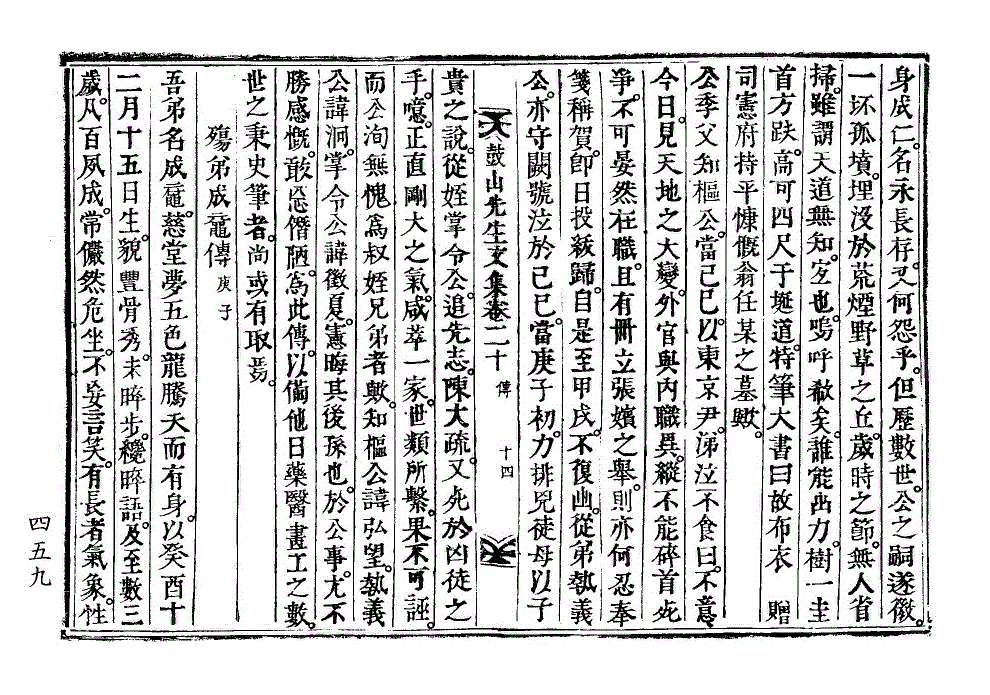 身成仁。名永長存。又何怨乎。但歷數世。公之嗣遂微。
一坏孤墳。埋沒於荒煙野草之丘。歲時之節。無人省
掃。雖謂天道無知。宜也。嗚呼欷矣。誰能出力。樹一圭
首方趺。高可四尺于埏道。特筆大書曰故布衣 贈
司憲府持平慷慨翁任某之墓歟。
公季父知樞公。當己巳。以東京尹。涕泣不食曰。不意
今日。見天地之大變。外官與內職異。縱不能碎首死
爭。不可晏然在職。且有冊立張嬪之擧。則亦何忍奉
箋稱賀。卽日投紱歸。自是至甲戌。不復出。從弟執義
公。亦守闕號泣於己巳。當庚子初。力排兇徒母以子
鼓山先生文集卷二十 傳 十四
貴之說。從姪掌令公。追先志。陳大疏。又死於凶徒之
手。噫。正直剛大之氣。咸萃一家。世類所繫。果不可誣。
而公洵無愧爲叔姪兄弟者歟。知樞公諱弘望。執義
公諱泂。掌令公諱徵夏。憲晦其後孫也。於公事。尤不
勝感慨。敢忘僭陋。爲此傳。以備他日藥醫畫工之數。
世之秉史筆者。尙或有取焉。
殤弟成鼇傳 庚子
吾弟名成鼇。慈堂夢五色龍騰天而有身。以癸酉十
二月十五日生。貌豐骨秀。未晬步。纔晬語。及至數三
歲。凡百夙成。常儼然危坐。不妄言笑。有長者氣象。性
四五九